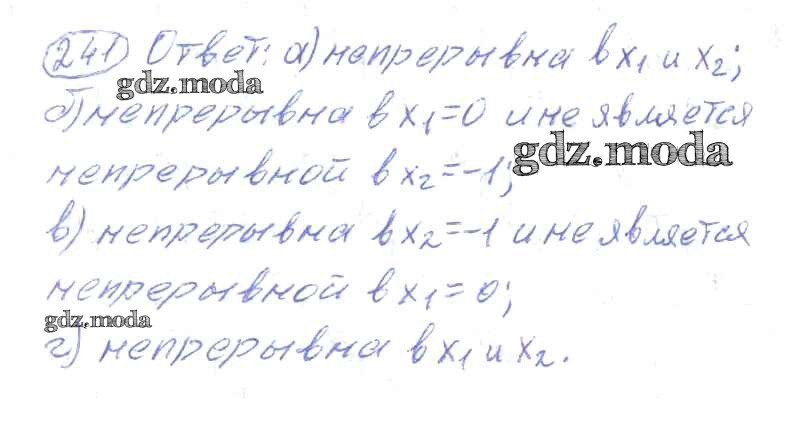 241 Ответ: а) непрерывна в x₁ и x₂;
gdz.moda
б) непрерывна в x₁=0 и не является
gdz.moda
непрерывной в x₂=-1;
в) непрерывна в x₂=-1 и не является
непрерывной в x₁=0;
gdz.moda
г) непрерывна в x₁ и x₂.